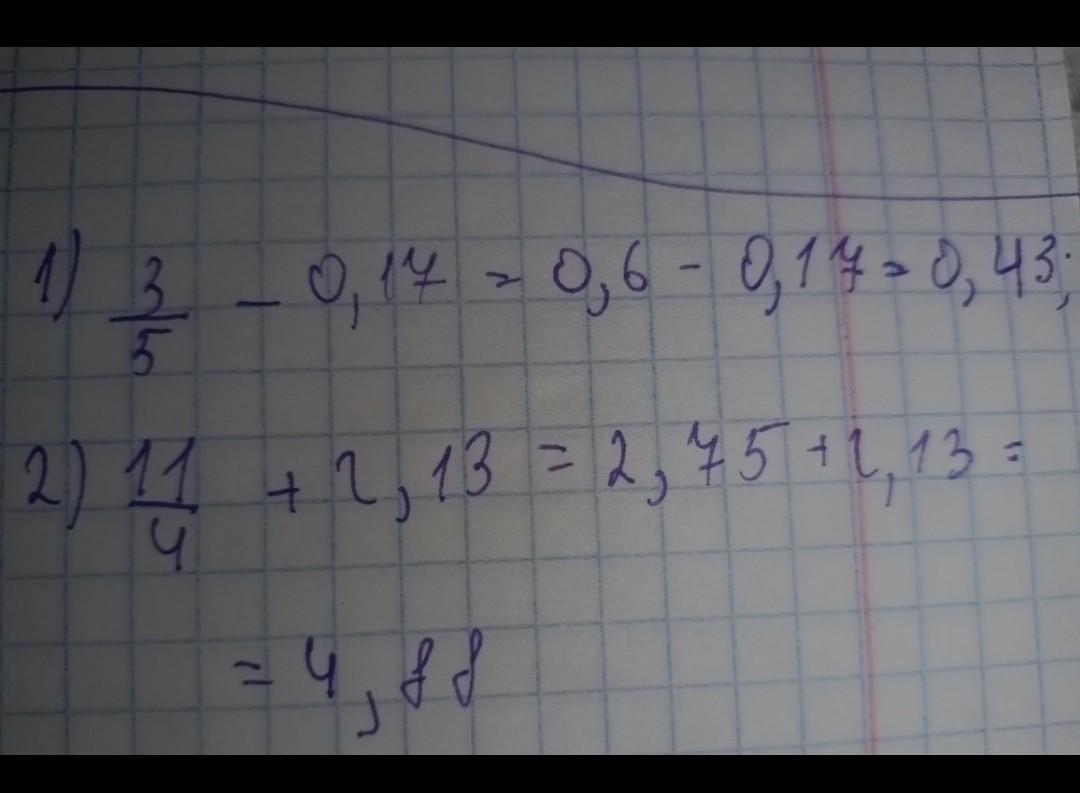 1) 3/5 - 0,17 = 0,6 - 0,17 = 0,43;
2) 11/4 + 2,13 = 2,75 + 2,13 =
= 4,88